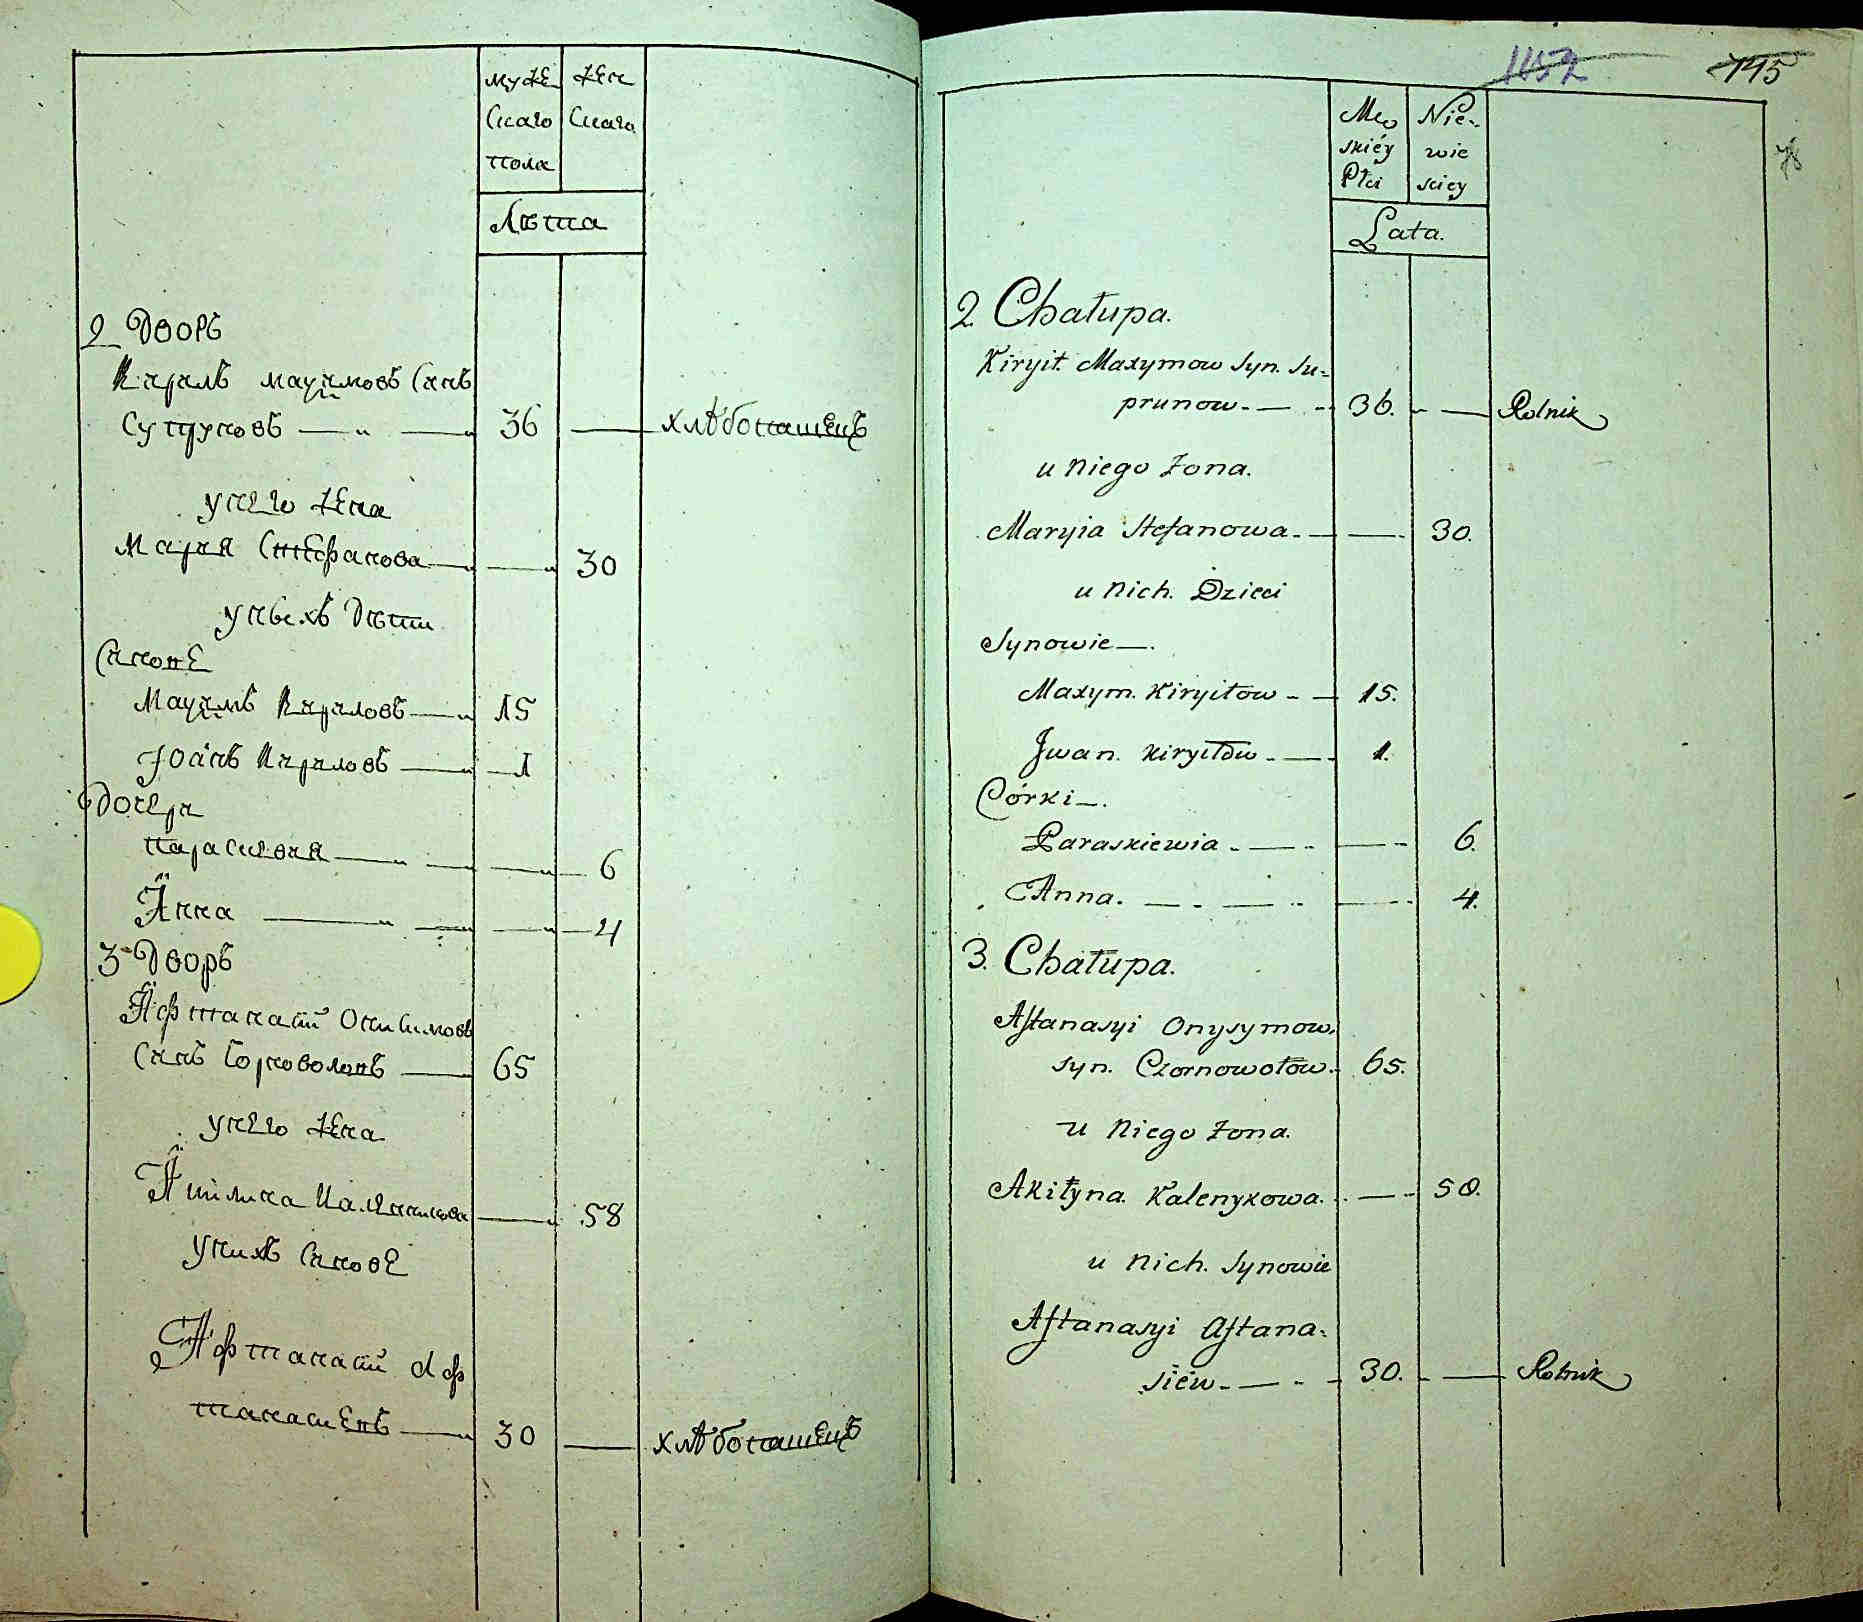 муже
скаго
пола
жен
скаго
Лѣта
2 Дворъ
Кирилъ Маѯимовъ синъ
Супруновъ — „ — 36 — хлѣбопашецъ
у него жена
Мария Стефанова — 30
у нѣхъ дѣти
Синове
Маѯимъ Кириловъ — 15
Іоанъ Кириловъ — 1
Дочери
Параскевия — 6
Анна — 4
3 Дворъ
Афтанасій Онисимовъ
синъ Чорноволовъ — 65
у него жена
Акилина Каленикова — 58
у нихъ синове
Афтанасій Аф
танасиевъ — 30 — хлѣбопашецъ
1152 145
Męs
skiéy
Płci
Nie-
wie
sciey
Lata.
2. Chałupa.
Kiryił Maxymow Syn. Su-
prunow. — 36. — Rolnik
u Niego Żona.
Maryia Stefanowa. — 30.
u Nich. Dzieci
Synowie —.
Maxym. Kiryiłow — 15.
Jwan. Kiryiłow — 1.
Córki —.
Paraskiewia — 6.
Anna. — 4.
3. Chałupa.
Aftanasyi Onysymow.
Syn. Czornowołow. 65.
u Niego Żona.
Akiłyna. Kalenykowa. — 58.
u Nich. Synowie
Aftanasyi Aftana-
siéw. — 30. — Rolnik